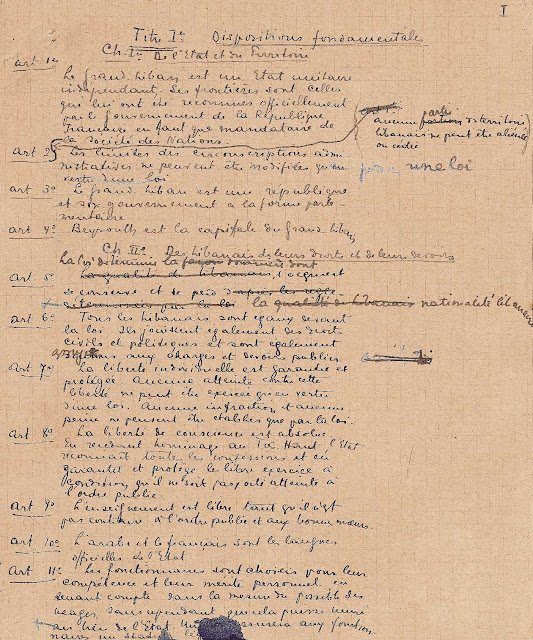 I
Titre Ier Dispositions fondamentales
Ch Ier De l'Etat et du Territoire
art 1er
Le grand Liban est un Etat unitaire
indépendant. Ses frontières sont celles
qui lui ont été reconnues officiellement
par le Gouvernement de la République
Française en tant que mandataire de
la Société des Nations.
aucune partie portions du territoire
libanais ne peut être aliénée
ou cédée
art 2 Les limites des circonscriptions admi
nistratives ne peuvent être modifiées qu'en
vertu d'une loi
une loi
art 3o Le Grand Liban est une république
et son gouvernement a la forme parle
mentaire
art 4o Beyrouth est la capitale du grand Liban
Ch II Des libanais de leurs droits et de leurs devoirs
La loi détermine la façon dont
art 5o La qualité de libanais, s'acquiert
se conserve et se perd d'après les règles
déterminées par la loi la qualité de libanais nationalité libanaise
art 6o Tous les libanais sont égaux devant
la loi. Ils jouissent également des droits
civils et politiques et sont également
aux charges et devoirs publics
art 7o La liberté individuelle est garantie et
protégée Aucune atteinte contre cette
liberté ne peut être exercée qu'en vertu
d'une loi. Aucune infraction et aucune
peine ne peuvent être établies que par la loi.
art 8o La liberté de conscience est absolue
En rendant hommage au Très Haut l'Etat
reconnaît toutes les confessions et en
garantit et protège le libre exercice à
condition qu'il ne soit pas porté atteinte à
l'ordre public
art 9o L'enseignement est libre tant qu'il n'est
pas contraire à l'ordre public et aux bonnes mœurs.
art 10o L'arabe et le français sont les langues
officielles de l'Etat
art 11o Les fonctionnaires sont choisis pour leur
compétence et leur mérite personnel en
tenant compte dans la mesure du possible des
usages, sans cependant que cela puisse nuire
au bien de l'Etat. assurera aux fonction
naires un